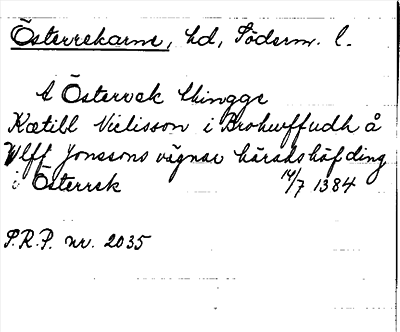 Österrekarne, hd, Söderm. l.
A Österrek thingge
Kætill Niclisson i Brohuffudh å
Vlff Jonssons vägnar häradshöfding
i Österrek 14/7 1384
S.R.P. nr. 2035